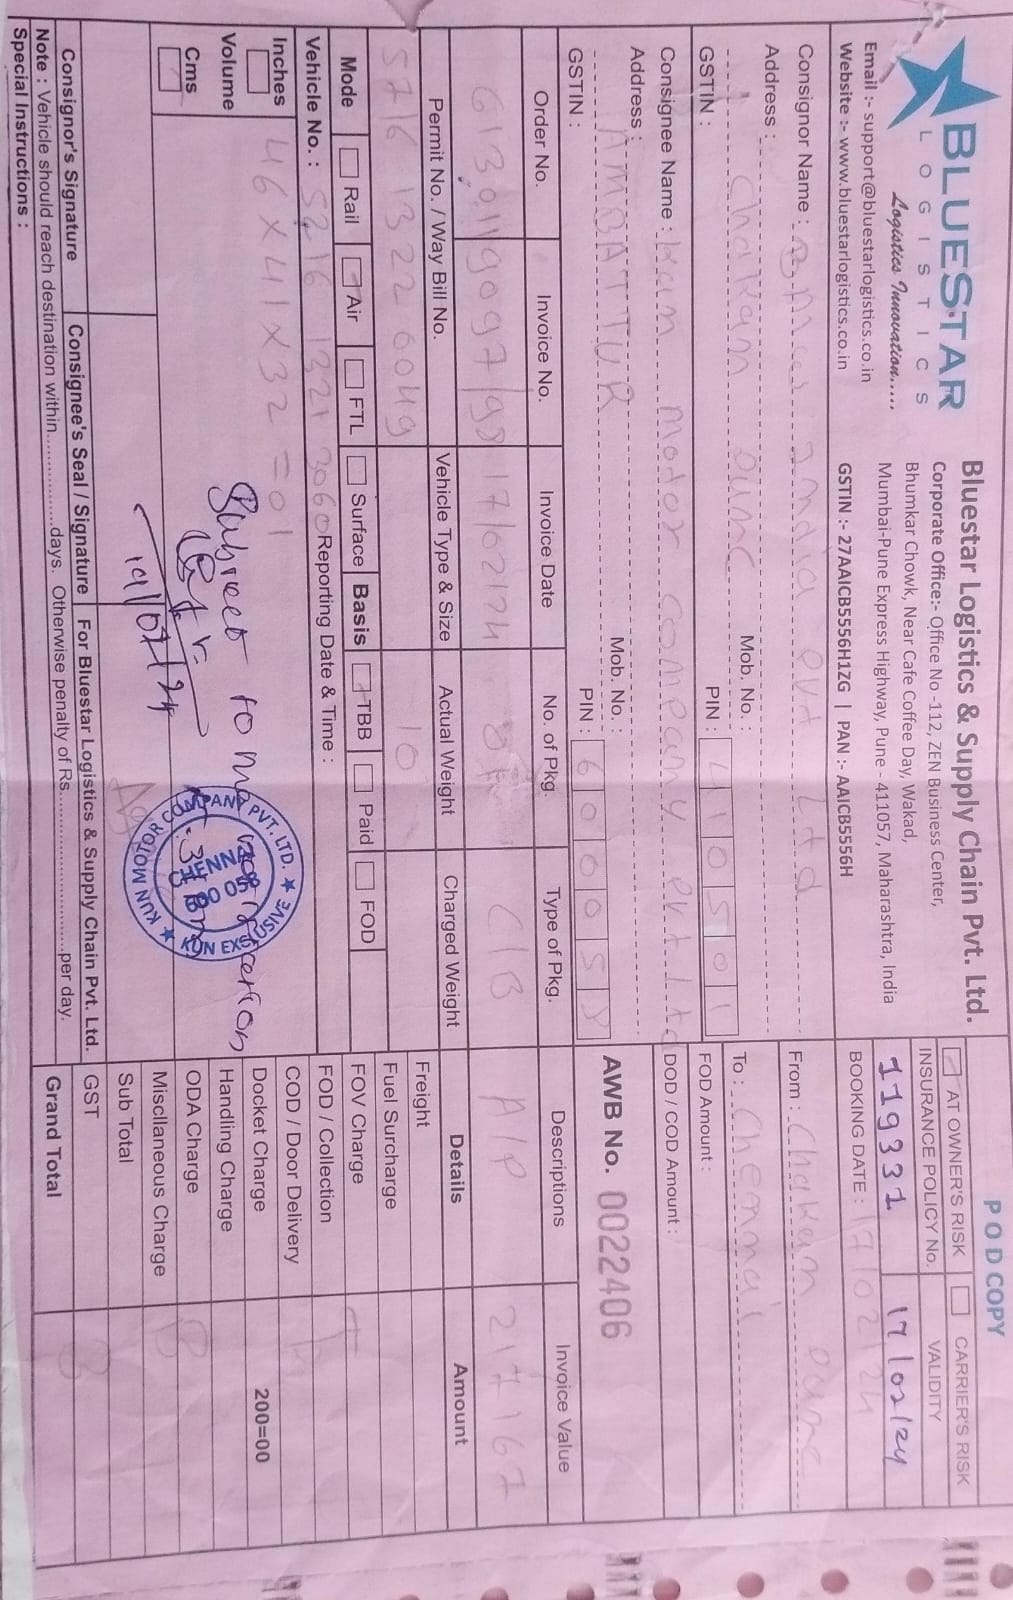 BLUESTAR
LOGISTICS
Logistics Innovation.....
Email :- support@bluestarlogistics.co.in
Website :- www.bluestarlogistics.co.in
Bluestar Logistics & Supply Chain Pvt. Ltd.
Corporate Office:- Office No -112, ZEN Business Center,
Bhumkar Chowk, Near Cafe Coffee Day, Wakad,
Mumbai-Pune Express Highway, Pune - 411057, Maharashtra, India
GSTIN :- 27AAICB5556H1ZG | PAN :- AAICB5556H
POD COPY
AT OWNER'S RISK CARRIER'S RISK
INSURANCE POLICY No. VALIDITY
119331 17/02/24
BOOKING DATE : 17/02/24
Consignor Name : India Pvt Ltd
Address :
Chakan
Mob. No. :
GSTIN : PIN : 410501
From : Chakan
To : Chennai
FOD Amount :
DOD / COD Amount :
Consignee Name : Kun Motor Company Pvt Ltd
Address :
AMBATTUR
Mob. No. :
GSTIN : PIN : 600058
AWB No. 0022406
Order No. Invoice No. Invoice Date No. of Pkg. Type of Pkg. Descriptions Invoice Value
6130119097/98 17/02/24 C/B A/P 217167
Permit No. / Way Bill No. Vehicle Type & Size Actual Weight Charged Weight Details Amount
5716 1322 0049 10
Freight
Fuel Surcharge
FOV Charge
FOD / Collection
COD / Door Delivery
Docket Charge 200=00
Handling Charge
ODA Charge
Miscllaneous Charge
Sub Total
GST
Grand Total
Mode Rail Air FTL Surface Basis TBB Paid FOD
Vehicle No. : 5216 1321 3060 Reporting Date & Time :
Inches
Volume
Cms
46 x 41 x 32 = 01
Subject to
19/02/24
KUN MOTOR COMPANY PVT. LTD. ★ KUN EXSLUSIVE ★
CHENNAI
600 058
Consignor's Signature Consignee's Seal / Signature For Bluestar Logistics & Supply Chain Pvt. Ltd.
Note : Vehicle should reach destination within.................days. Otherwise penalty of Rs..............................per day.
Special Instructions :